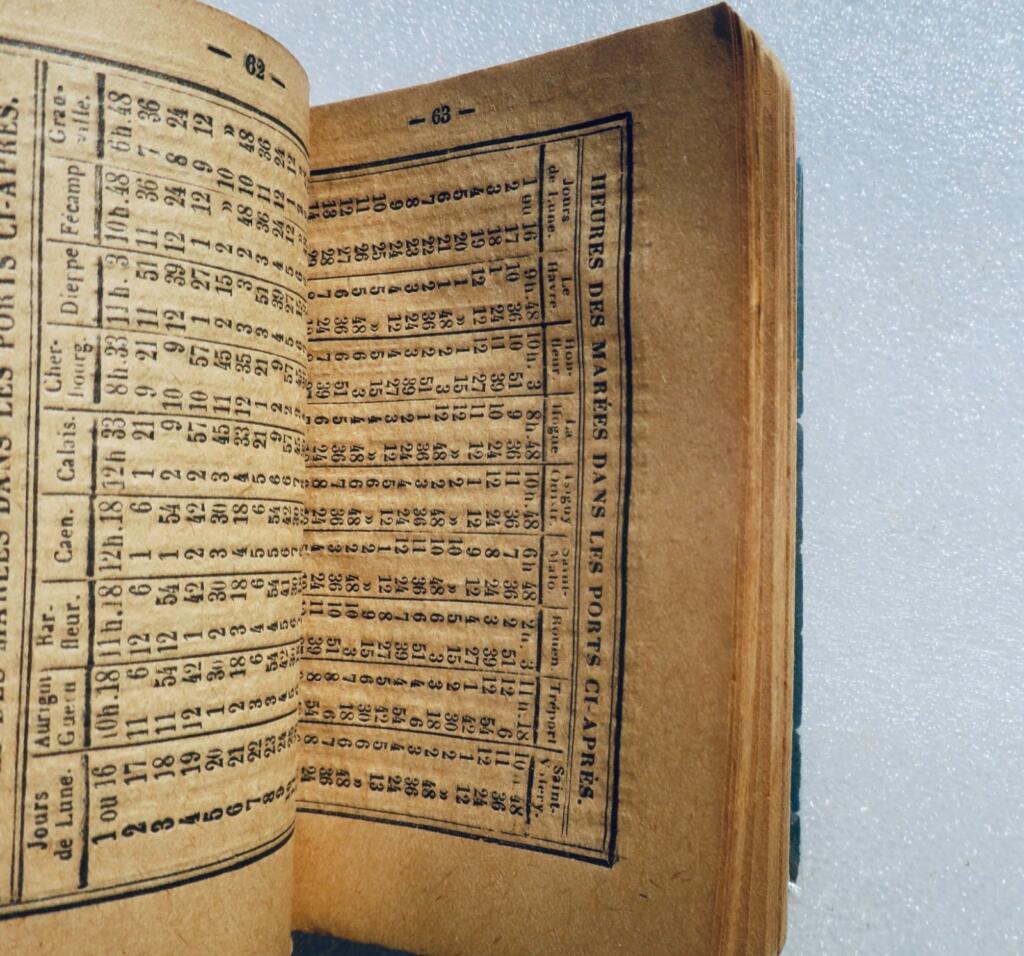 — 62 —
LES PORTS CI-APRÈS.
Jours de Lune. Aurigni Guern Har- fleur. Caen. Calais. Cher- bourg. Dieppe Fécamp Gran- ville.
1 ou 16 10h.18 11h.18 12h.18 12h 33 8h.33 11h. 3 10h.48 6h.48
2 17 11 6 12 6 1 6 1 21 9 21 11 51 11 36 7 36
3 18 11 54 12 54 1 54 2 9 10 9 12 39 12 24 8 24
4 19 12 42 1 42 2 42 2 57 10 57 1 27 1 12 9 12
5 20 1 30 2 30 3 30 3 45 11 45 2 15 2 » 10 »
6 21 2 18 3 18 4 18 4 33 12 35 3 3 2 48 10 48
7 22 3 6 4 6 5 6 5 21 1 21 3 51 3 36 11 36
8 23 3 54 4 54 5 54 6 9 2 9 4 39 4 24 12 24
— 63 —
HEURES DES MARÉES DANS LES PORTS CI-APRÈS.
Jours de Lune. Le Havre Hon- fleur La Hogue Isigny Christ. Saint- Malo Rouen. Tréport Saint- Valery.
1 ou 16 9h.48 10h. 3 8h.48 10h.48 6h 48 2h. 3 11h.18 10h 48
2 17 10 36 10 51 9 36 11 36 7 36 2 51 12 6 11 36
3 18 1 24 11 39 10 24 12 24 8 24 3 39 12 54 12 24
4 19 12 12 12 27 11 12 1 12 9 12 4 27 1 42 1 12
5 20 1 » 1 15 12 » 2 » 10 » 5 15 2 30 2 »
6 21 1 48 2 3 12 48 2 48 10 48 6 3 3 18 2 48
7 22 2 36 2 51 1 36 3 36 11 36 6 51 4 6 3 36
8 23 3 24 3 39 2 24 4 24 12 24 7 39 4 54 4 24
9 24 4 12 4 27 3 12 5 12 1 12 8 27 5 42 5 13
10 25 5 » 5 15 4 » 6 » 2 » 9 15 6 30 6 »
11 26 5 48 6 3 4 48 6 48 2 48 10 3 7 18 6 48
12 27 6 36 6 51 5 36 7 36 3 36 10 51 8 6 7 36
13 28 7 24 7 39 6 24 8 24 4 24 11 39 8 54 8 24